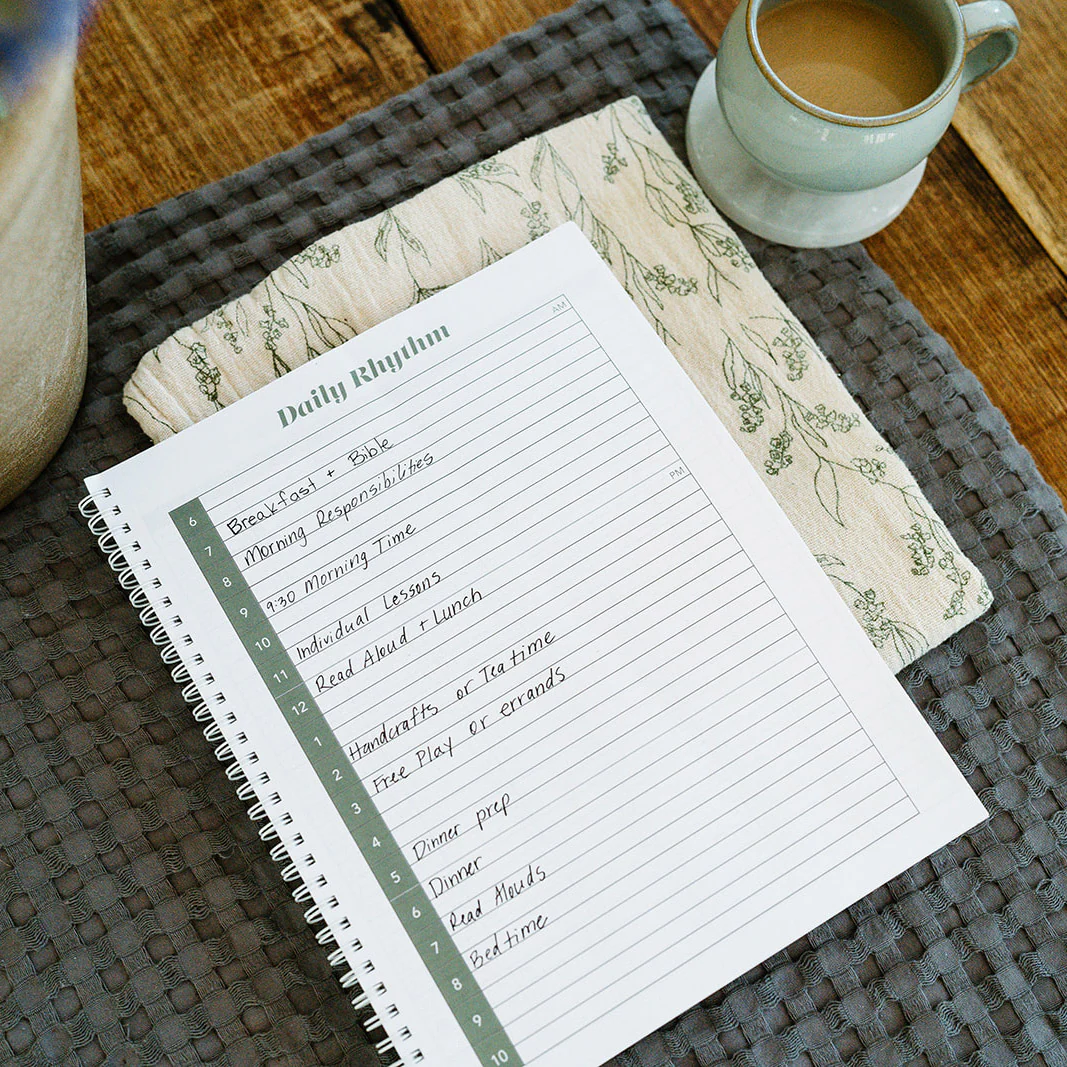 Daily Rhythm
AM
6
7 Breakfast + Bible
8 Morning Responsibilities
9 9:30 Morning Time
10
11 Individual Lessons
12 Read Aloud + Lunch
PM
1
2 Handcrafts or Teatime
3 Free Play or errands
4
5 Dinner prep
6 Dinner
7 Read Alouds
8 Bedtime
9
10